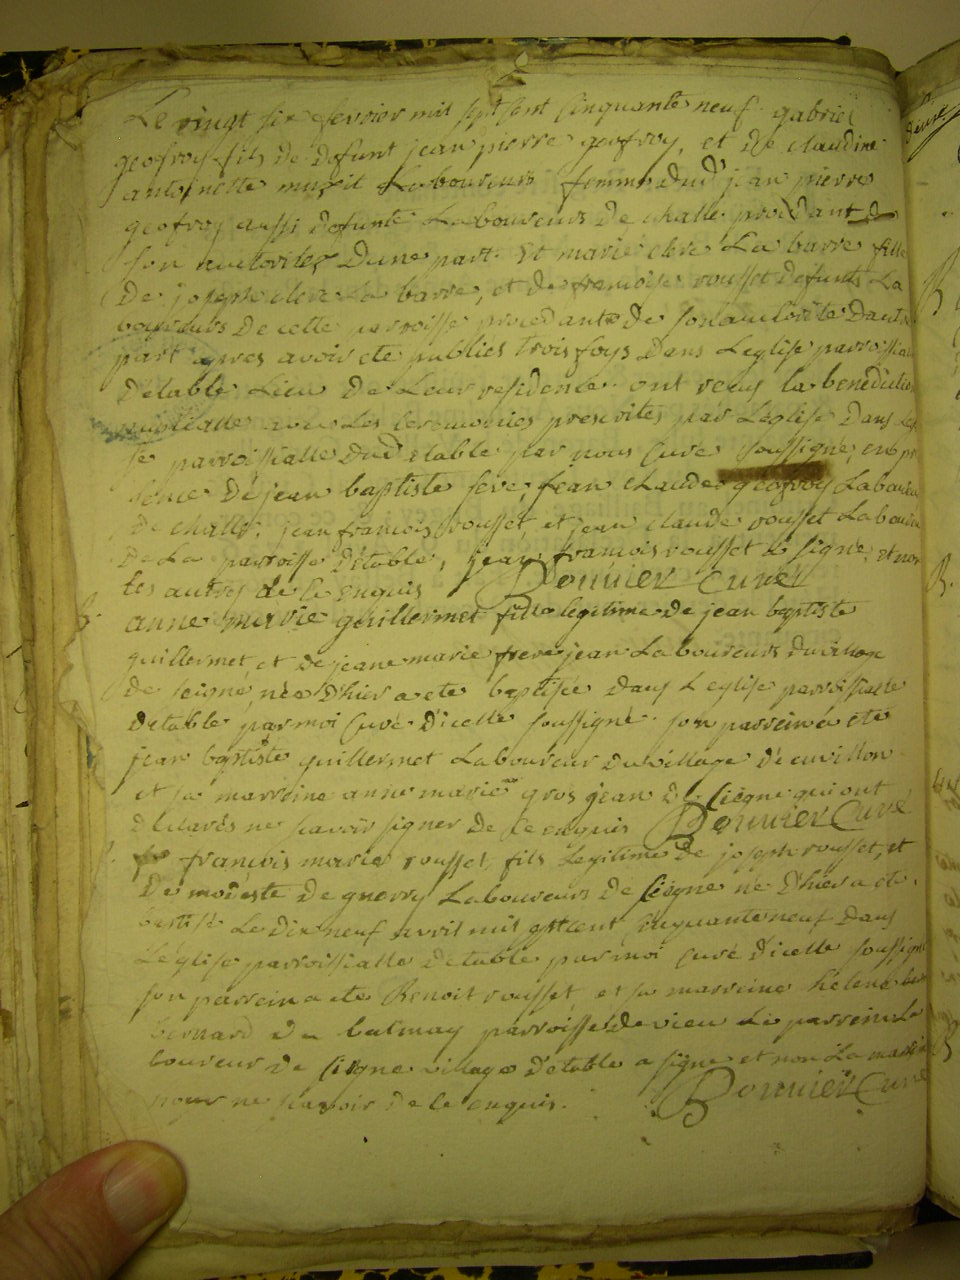 Le vingt six fevrier mil sept sent sinquante neuf gabriel
geofroy fils de defunt jean pierre geofroy, et de claudine
antoinette Laboureurs femme dud' jean pierre
geofroy aussi defunte Laboureurs de challe procedant de
son authorite Dune part. Et marie clerc La barre fille
De joseph clerc La barre, et de francoise rousset defunts La
boureurs De cette parroisse procedante de son authorite Dautre
part apres avoir ete publies trois foys Dans Leglise parroissialle
Detable Lieu De Leur residence ont reçus la benediction
nuptialle avec Les ceremonies prescrites par Leglise Dans Legli
se parroissialle Dud' etable par nous Curé soussigné, en pre
sence De jean baptiste feve, jean claude geofroy Laboureurs
De challe, jean francois rousset et jean claude rousset Laboureurs
De La parroisse Detable, jean francois rousset a signé, et non
les autres de ce enquis Bonnier Curé
anne marie guillermet fille legitime de jean baptiste
guillermet et De jeane marie frere jean Laboureurs du village
De née D'hier a ete baptisée Dans Leglise parroissialle
Detable par moi Curé D'icelle soussigné son parrein a ete
jean baptiste guillermet Laboureur Du village De cuvillon
et sa marreine anne marie gros jean de qui ont
Declarés ne scavoir signer de ce enquis Bonnier Curé
francois marie rousset, fils Legitime De joseph rousset, et
De modeste De gnerry Laboureurs De né D'hier a ete
baptisé Le Dix neuf avril mil sept cent cinquante neuf Dans
Léglise parroissialle Detable par moi Curé D'icelle soussigné
son parrein a ete Benoit rousset, et sa marreine helene
bernard De balmay parroisse De vieu Le parrein La
boureur De village Detable a signé et non La marreine
pour ne scavoir de ce enquis. Bonnier Curé